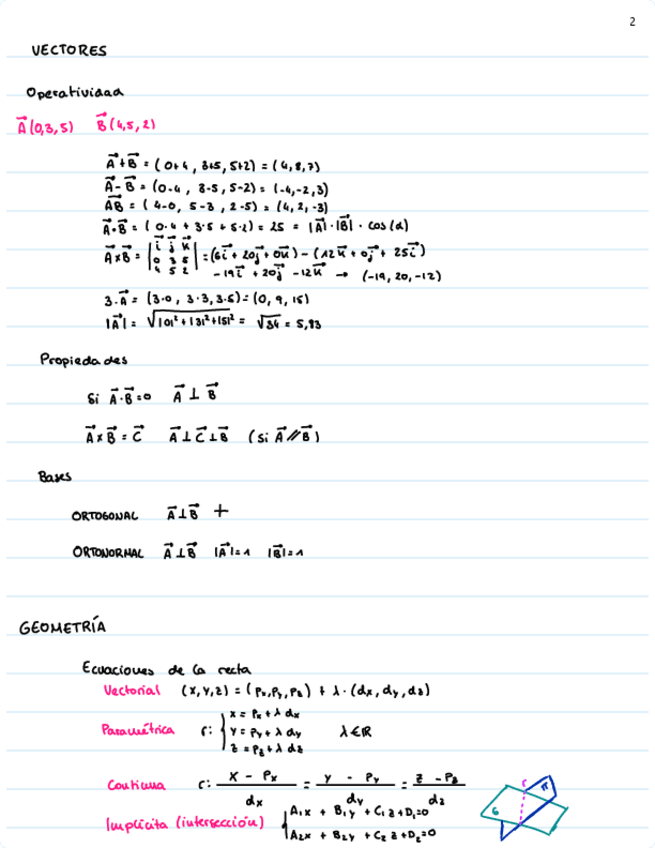 2
VECTORES
Operatividad
A⃗(0,3,5) B⃗(4,5,2)
A⃗+B⃗ = (0+4, 3+5, 5+2) = (4,8,7)
A⃗-B⃗ = (0-4, 3-5, 5-2) = (-4,-2,3)
AB⃗ = (4-0, 5-3, 2-5) = (4,2,-3)
A⃗·B⃗ = (0·4 + 3·5 + 5·2) = 25 = |A⃗|·|B⃗|·cos(α)
A⃗xB⃗ = |i⃗ j⃗ k⃗| = (6i⃗ + 20j⃗ + 0k⃗) - (12k⃗ + 0j⃗ + 25i⃗)
0 3 5
4 5 2
-19i⃗ + 20j⃗ - 12k⃗ → (-19, 20, -12)
3·A⃗ = (3·0, 3·3, 3·5) = (0, 9, 15)
|A⃗| = √|0|²+|3|²+|5|² = √34 = 5,83
Propiedades
Si A⃗·B⃗=0 A⃗ ⊥ B⃗
A⃗xB⃗ = C⃗ A⃗⊥C⃗⊥B⃗ (Si A⃗∦B⃗)
Bases
ORTOGONAL A⃗⊥B⃗
ORTONORMAL A⃗⊥B⃗ |A⃗|=1 |B⃗|=1
GEOMETRÍA
Ecuaciones de la recta
Vectorial (x,y,z) = (Px,Py,Pz) + λ·(dx,dy,dz)
Paramétrica r: { x = Px + λ dx
y = Py + λ dy λ∈R
z = Pz + λ dz
Continua r: x - Px / dx = y - Py / dy = z - Pz / dz
Implícita (intersección) { A₁x + B₁y + C₁z + D₁=0
A₂x + B₂y + C₂z + D₂=0
r
π